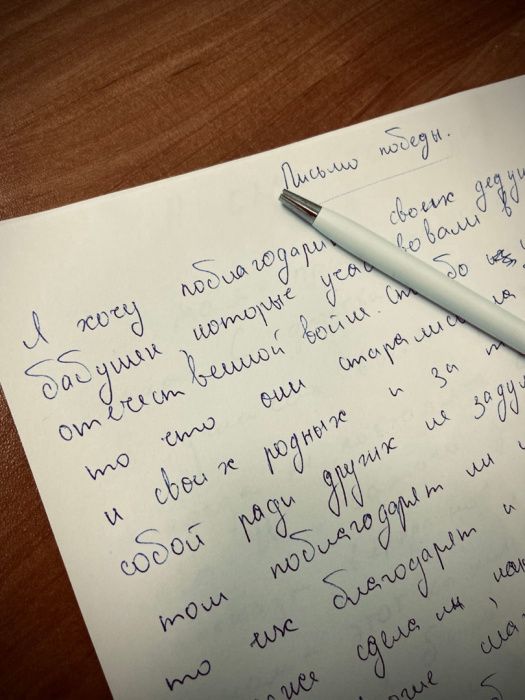 Письмо победы.
Я хочу поблагодари своих дедуш
бабушек которые учавствовали в
отечественной войне. Спасибо
то что они старались
и своих родных и за т
собой ради других не задум
том поблагодарят ли и
то их благодарят и
сделали, как